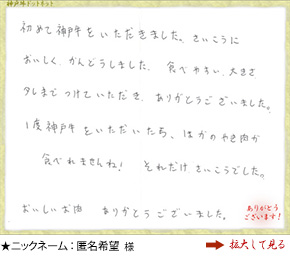 神戸牛ドットネット
初めて神戸牛をいただきました。さいこうに
おいしく、かんどうしました。食べやすい大きさ
タレまでつけていただき、ありがとうございました。
1度神戸牛をいただいたら、ほかのやき肉が
食べれませんね！ それだけさいこうでした。
おいしいお肉 ありがとうございました。
ありがとう
ございます！
★ニックネーム：匿名希望 様
拡大して見る